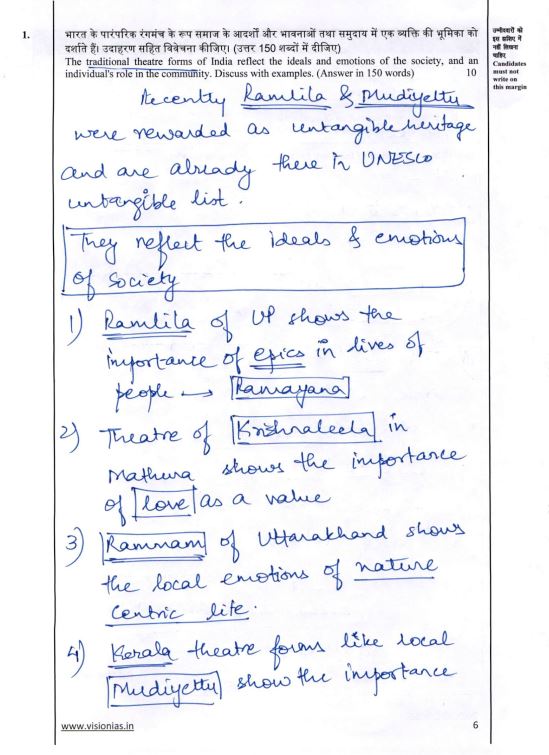 1.
भारत के पारंपरिक रंगमंच के रूप समाज के आदर्शों और भावनाओं तथा समुदाय में एक व्यक्ति की भूमिका को
दर्शाते हैं। उदाहरण सहित विवेचना कीजिए। (उत्तर 150 शब्दों में दीजिए)
The traditional theatre forms of India reflect the ideals and emotions of the society, and an
individual's role in the community. Discuss with examples. (Answer in 150 words) 10
उम्मीदवारों को
इस हाशिए में
नहीं लिखना
चाहिए
Candidates
must not
write on
this margin
Recently Ramlila & Mudiyettu
were rewarded as untangible heritage
and are already there in UNESCO
untangible list.
They reflect the ideals & emotions
of society
1) Ramlila of UP shows the
importance of epics in lives of
people → Ramayana
2) Theatre of Krishnaleela in
Mathura shows the importance
of love as a value
3) Rammam of Uttarakhand shows
the local emotions of nature
centric life.
4) Kerala theatre forms like local
Mudiyettu show the importance
www.visionias.in
6